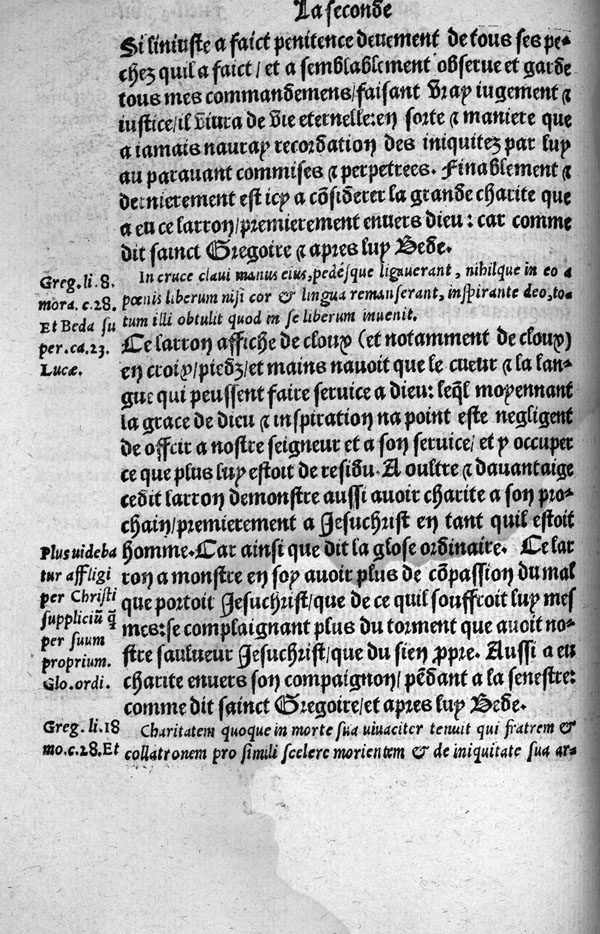 La seconde
Si liniuste a faict penitence deuement de tous ses pe-
chez quil a faict/ et a semblablement obserue et garde
tous mes commandemens/faisant vray iugement ⁊
iustice/il viura de vie eternelle: en sorte ⁊ maniere que
a iamais nauray recordation des iniquitez par luy
au parauant commises ⁊ perpetrees. Finablement ⁊
dernierement est icy a cõsiderer la grande charite que
a eu ce larron/premierement enuers dieu: car comme
dit sainct Gregoire ⁊ apres luy Bede.
Greg. li. 8.
mora. c. 28.
Et Beda su
per. ca. 23.
Lucæ.
In cruce claui manus eius, pedésque ligauerant, nihilque in eo a
pœnis liberum nisi cor & lingua remanserant, inspirante deo, to-
tum illi obtulit quod in se liberum inuenit.
Ce larron affiche de cloux (et notamment de cloux)
en croix/piedz/et mains nauoit que le cueur ⁊ la lan-
gue qui peussent faire seruice a dieu: leq̃l moyennant
la grace de dieu ⁊ inspiration na point este negligent
de offrir a nostre seigneur et a son seruice/ et y occuper
ce que plus luy estoit de residu. A oultre ⁊ dauantaige
cedit larron demonstre aussi auoir charite a son pro-
chain/premierement a Jesuchrist en tant quil estoit
homme. Car ainsi que dit la glose ordinaire. Ce lar
ron a monstre en soy auoir plus de cõpassion du mal
que portoit Jesuchrist/que de ce quil souffroit luy mes
mes: se complaignant plus du torment que auoit no-
stre saulueur Jesuchrist/que du sien ꝓpre. Aussi a eu
charite enuers son compaignon/ pẽdant a la senestre:
comme dit sainct Gregoire/et apres luy Bede.
Plus uideba
tur affligi
per Christi
suppliciũ q̃
per suum
proprium.
Glo. ordi.
Greg. li. 18
mo. c. 28. Et
Charitatem quoque in morte sua uiuaciter tenuit qui fratrem &
collatronem pro simili scelere morientem & de iniquitate sua ar-